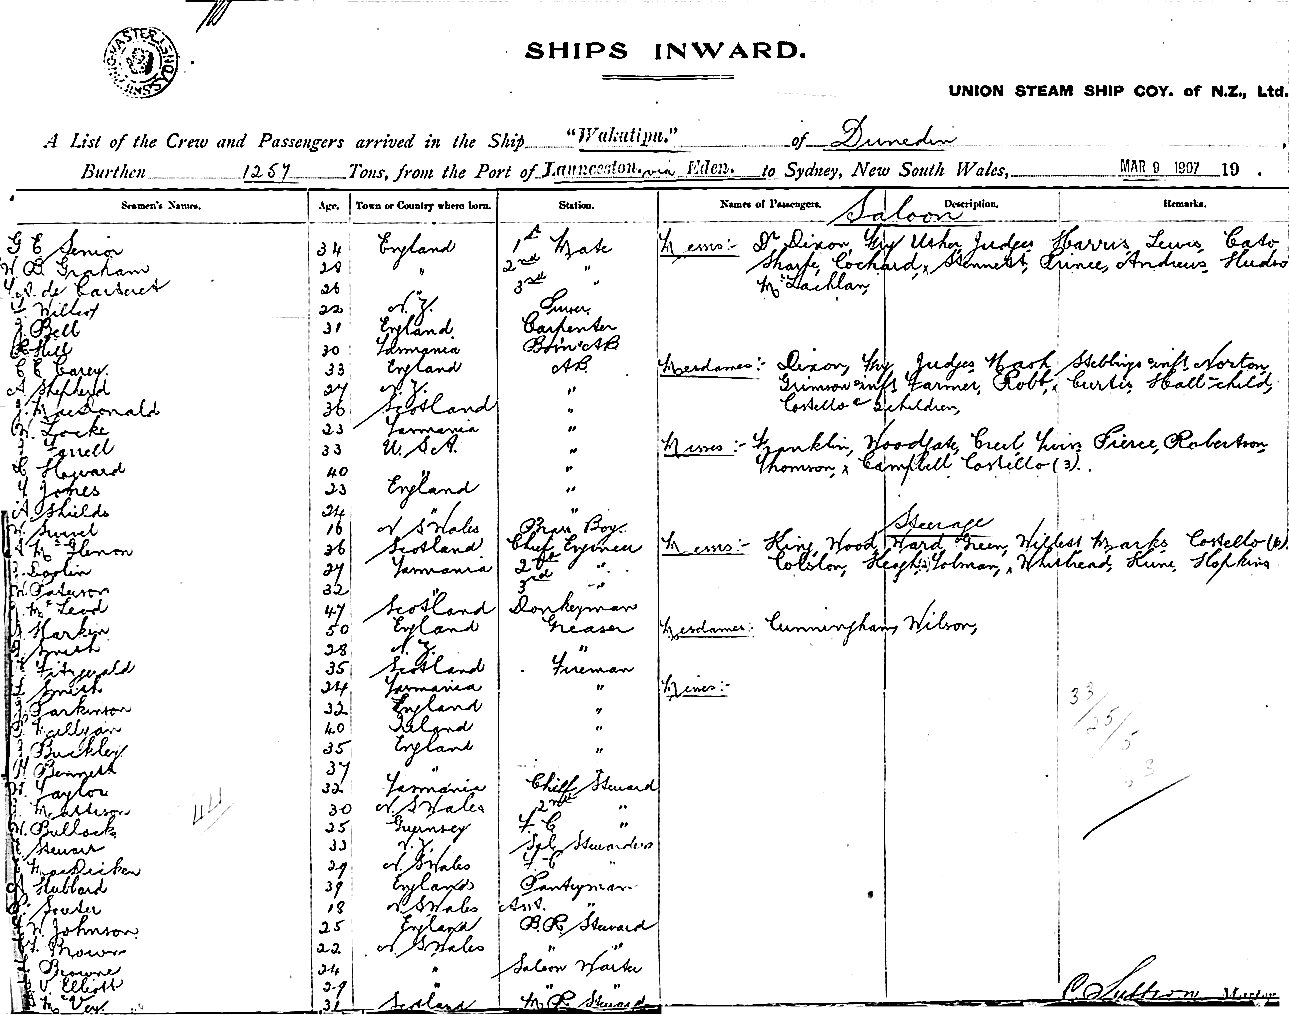 SHIPS INWARD.
UNION STEAM SHIP COY. of N.Z., Ltd.
A List of the Crew and Passengers arrived in the Ship "Wakatipu." of Dunedin
Burthen 1257 Tons, from the Port of Launceston. via Eden. to Sydney, New South Wales, MAR 9 1907 19 .
Seamen's Names. Age. Town or Country where born. Station. Names of Passengers. Description. Remarks.
Saloon
G E Senior 34 England 1st Mate Messrs:- Dr Dixon, Fry, Usher, Judges Harris, Lewis, Cato
W B Graham 28 " 2nd " Sharpe, Cochard, Stennett, Prince, Andrews
de Carteret 26 " 3rd " McLachlan,
22 N.Z.
J Bell 31 England Carpenter
Hill 30 Tasmania Bosn & AB
E Carey 33 England AB Mesdames:- Dixon, Fry, Judges, Nash, Stebbings & inft Norton,
A Shepherd 27 N.Z. " Grimson & inft Farmer, Robt, Curtis, Hall & child,
J. MacDonald 36 Scotland " Costello & 2 children,
W. Locke 23 Tasmania "
Farrell 33 U.S.A. " Misses:- Franklin, Woodgate, Cecil, Pierce, Robertson
Howard 40 " " Thomson, Campbell Costello (3).
Jones 23 England "
A Shields 24 " "
W. 16 N S Wales Brass Boy. Steerage
36 Scotland Chief Engineer Messrs:- King, Wood, Ward, Green, Marks, Costello
27 Tasmania 2nd " Colston, Tolman, Whitehead, Hopkins
W. Paterson 32 " 3rd "
McLeod 47 Scotland Donkeyman
Harken 50 England Greaser Mesdames: Cunningham, Wilson,
Smith 28 N.Z. "
Fitzgerald 35 Scotland Fireman
Smith 24 Tasmania " Misses:-
Parkinson 32 England "
40 Ireland "
Buckley 35 England "
Bennett 37 "
Taylor 32 Tasmania Chief Steward
Mattison 30 N. S Wales 2nd "
W. Bullock 25 Guernsey F. C "
Stewart 33 N.Z. Stewardess
MacDicken 29 N. S Wales F. C "
Hubbard 39 England Pantryman
Souter 18 N S Wales Asst. "
W Johnson 25 England B.R. Steward
Brown 22 N. S Wales " "
Browne 24 " Saloon Waiter
V Elliott 29 " "
31 Scotland M. R. Steward
44
33/25/5
63
C. Suttron Master